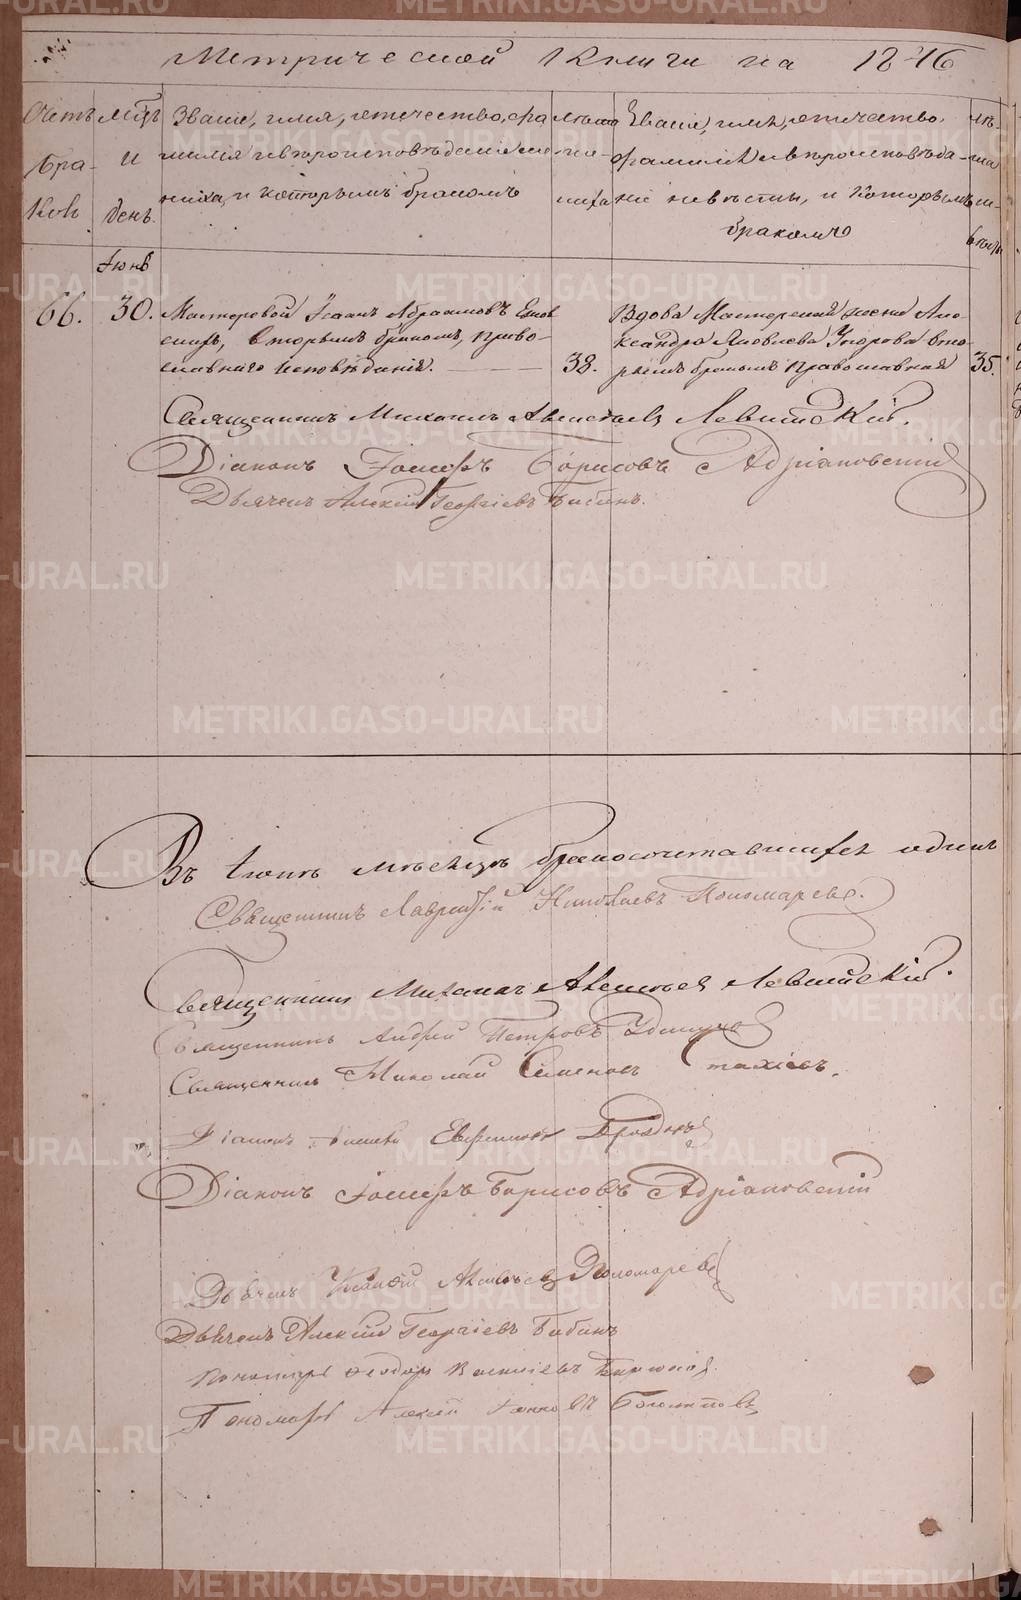 Метрической Книги на 1846
Счетъ
бра-
ковъ
Мѣцъ
и
день.
Званіе, имя, отечество, фа
милія и вѣроисповѣданіе же
ниха, и которымъ бракомъ
лѣта
же-
ниха
Званіе, имя, отечество,
фамилія и вѣроисповѣда-
ніе невѣсты, и которымъ
бракомъ
лѣ-
та
не-
вѣсты
Іюнь
66.
30.
Мастеровой Іоаннъ Абрамовъ
вторымъ бракомъ, право-
славнаго исповѣданія.
38.
Вдова Мастерская жена Але
ксандра Яковлева Уварова вто
рымъ бракомъ православная
35.
Священникъ Михаилъ Алексѣевъ Левитскій.
Діаконъ Іосифъ Борисовъ Адріановскій
Дьячекъ Алексій Георгіевъ Бабинъ.
Въ Іюнѣ мѣсяцѣ бракосочетавшихся одинъ
Священникъ Лаврентій Николаевъ Пономаревъ.
Священникъ Михаилъ Алексѣевъ Левитскій.
Священникъ Андрей Петровъ Удинцовъ
Священникъ Николай Симеоновъ Стахіевъ.
Діаконъ
Діаконъ Іосифъ Борисовъ Адріановскій
Дьячекъ Алексѣевъ Пономаревъ
Дьячекъ Алексій Георгіевъ Бабинъ
Пономарь Ѳеодоръ Василіевъ
Пономарь Алексій
METRIKI.GASO-URAL.RU